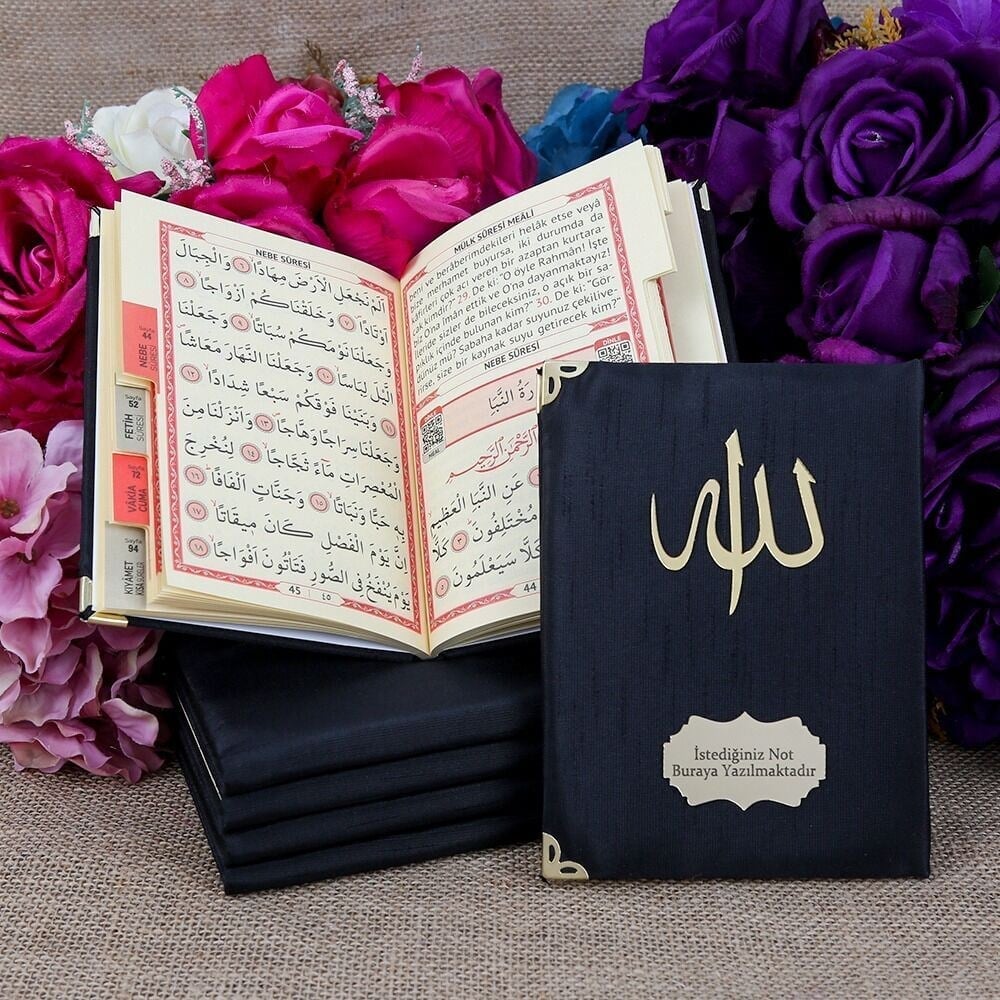 NEBE SÛRESİ
اَلَمْ نَجْعَلِ الْاَرْضَ مِهَادًا ٦ وَالْجِبَالَ
اَوْتَادًا ٧ وَخَلَقْنَاكُمْ اَزْوَاجًا ٨
وَجَعَلْنَا نَوْمَكُمْ سُبَاتًا ٩ وَجَعَلْنَا
الَّيْلَ لِبَاسًا ١٠ وَجَعَلْنَا النَّهَارَ مَعَاشًا
١١ وَبَنَيْنَا فَوْقَكُمْ سَبْعًا شِدَادًا ١٢
وَجَعَلْنَا سِرَاجًا وَهَّاجًا ١٣ وَاَنْزَلْنَا مِنَ
الْمُعْصِرَاتِ مَاءً ثَجَّاجًا ١٤ لِنُخْرِجَ
بِهِ حَبًّا وَنَبَاتًا ١٥ وَجَنَّاتٍ اَلْفَافًا ١٦
اِنَّ يَوْمَ الْفَصْلِ كَانَ مِيقَاتًا ١٧
يَوْمَ يُنْفَخُ فِي الصُّورِ فَتَأْتُونَ اَفْوَاجًا ١٨
45 | ٤٥
Sayfa
44
NEBE
SÛRESİ
Sayfa
52
FETİH
SÛRESİ
Sayfa
72
VÂKIA
CUMA
Sayfa
94
KIYÂMET
KISA SÛRELER
MÜLK SÛRESİ MEÂLİ
beni ve berâberimdekileri helâk etse veyâ
bize merhamet buyursa, iki durumda da
kâfirleri çok acı veren bir azaptan kurtara-
bilir?" 29. De ki: "O öyle Rahmân! İşte
biz bina îmân ettik ve O'na dayanmaktayız!
İleride sizler de bileceksiniz, o açık bir sa-
pıklık içinde bulunan kim?" 30. De ki: "Gör-
dünüz mü? Sabaha kadar suyunuz çekiliver-
irse, size bir kaynak suyu getirecek kim?
NEBE SÛRESİ
DİNLE
رَةُ النَّبَا
DİNLE
MEAL
الرَّحْمٰنِ الرَّحِيمِ
عَنِ النَّبَاِ الْعَظِيمِ
مُخْتَلِفُونَ ٣ كَلَّا
كَلَّا سَيَعْلَمُونَ ٥
44
الله
İstediğiniz Not
Buraya Yazılmaktadır